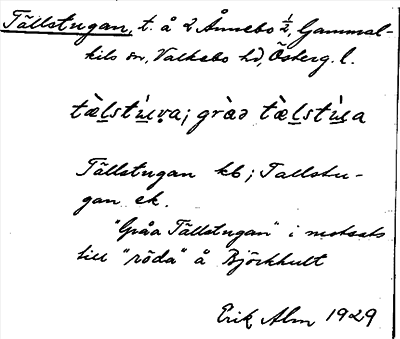 Tällstugan, t. å 2 Ånnebo ½, Gammal-
kils sn, Valkebo hd, Österg. l.
Tällstugan kb; Tallstu-
gan ek.
"Gråa Tällstugan" i motsats
till "röda" å Björkhult
Erik Alm 1929